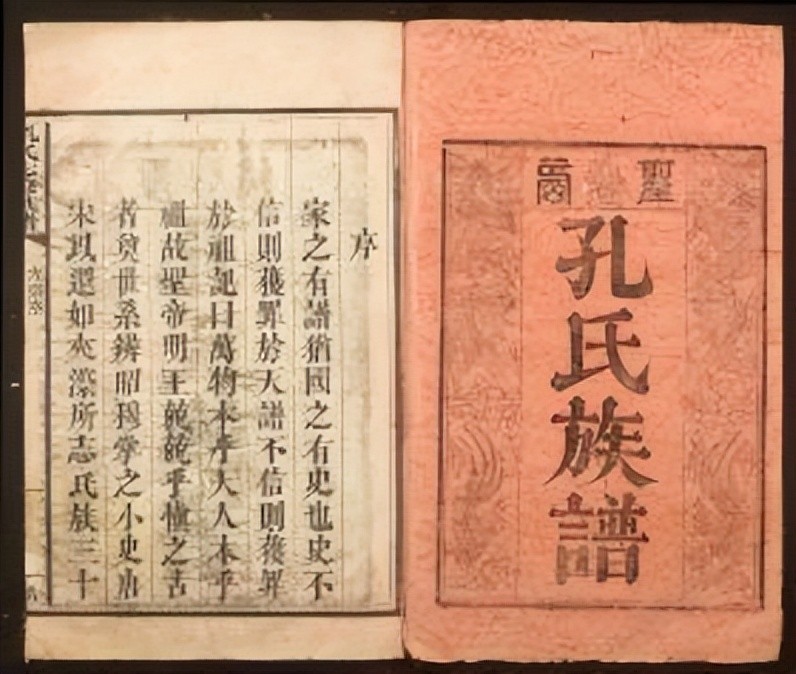 聖裔
孔氏族譜
序
家之有譜猶國之有史也史不
信則獲罪於天譜不信則獲罪
於祖記曰萬物本乎天人本乎
祖故聖帝明王兢兢乎慎之古
者奠世系辨昭穆掌之小史唐
宋以還如夾漈所志氏族三十